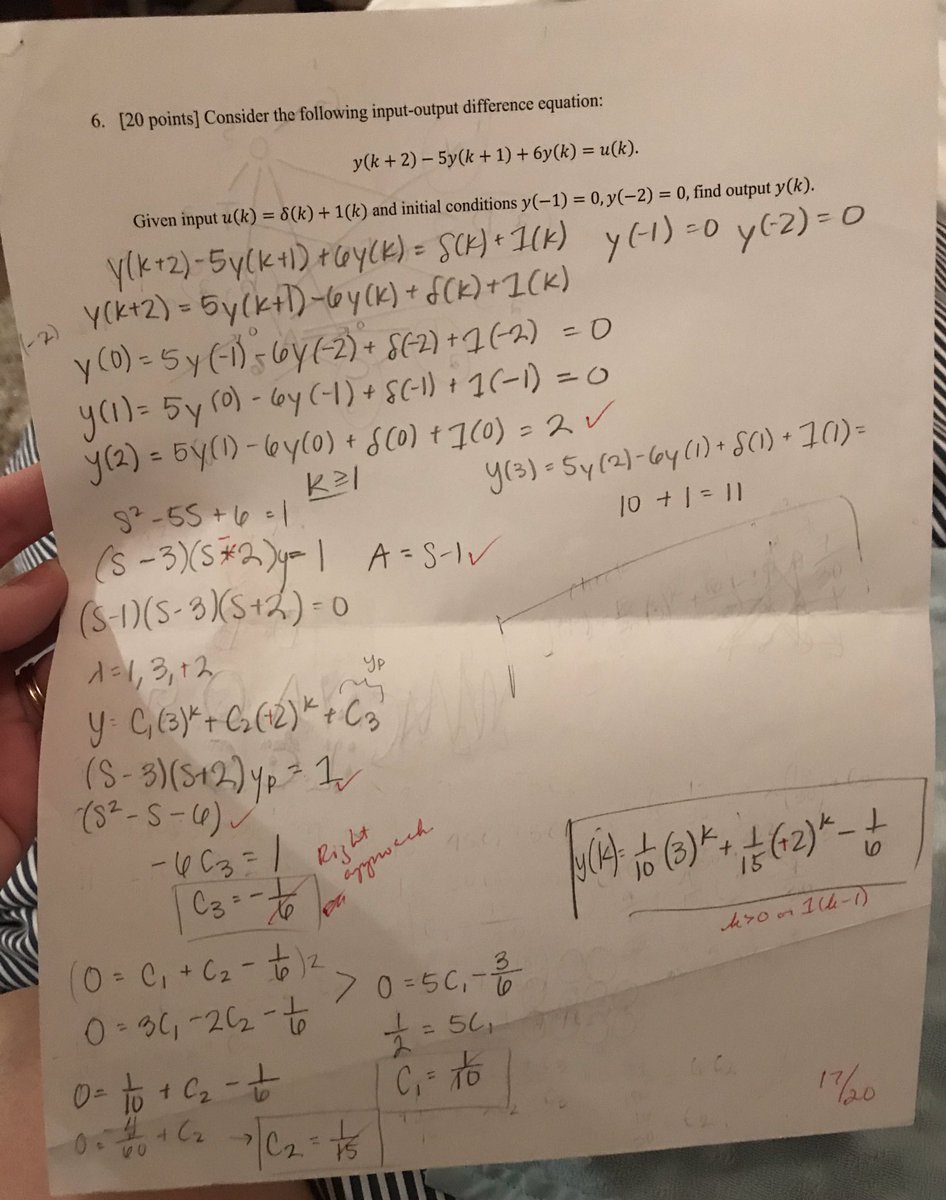 6. [20 points] Consider the following input-output difference equation:
y(k + 2) − 5y(k + 1) + 6y(k) = u(k).
Given input u(k) = δ(k) + 1(k) and initial conditions y(−1) = 0, y(−2) = 0, find output y(k).
y(k+2)-5y(k+1)+6y(k) = δ(k)+1(k) y(-1)=0 y(-2)=0
y(k+2) = 5y(k+1)-6y(k)+δ(k)+1(k)
(-2)
y(0) = 5y(-1)-6y(-2)+δ(-2)+1(-2) = 0
y(1) = 5y(0)-6y(-1)+δ(-1)+1(-1) = 0
y(2) = 5y(1)-6y(0)+δ(0)+1(0) = 2 ✓
k≥1
y(3) = 5y(2)-6y(1)+δ(1)+1(1) =
10 + 1 = 11
S²-5S+6 = 1
(S-3)(S+2)y = 1 A = S-1 ✓
(S-1)(S-3)(S+2) = 0
λ=1, 3, +2
yp
y = C₁(3)ᵏ + C₂(+2)ᵏ + C₃
(S-3)(S+2)yp = 1 ✓
(S²-S-6) ✓
-6C₃ = 1
Right approach
C₃ = -1/6
y(k) = 1/10 (3)ᵏ + 1/15 (+2)ᵏ - 1/6
k>0 or 1(k-1)
(0 = C₁ + C₂ - 1/6)2
0 = 3C₁ - 2C₂ - 1/6
> 0 = 5C₁ - 3/6
1/2 = 5C₁
C₁ = 1/10
0 = 1/10 + C₂ - 1/6
0 = -4/60 + C₂ → C₂ = 1/15
17/20